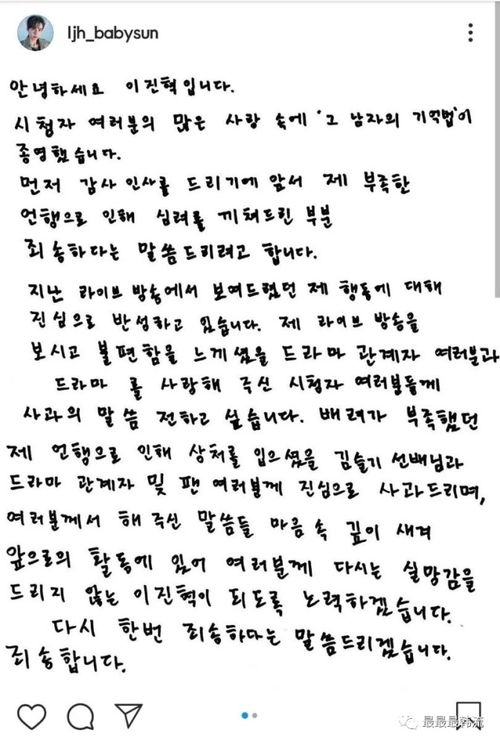 ljh_babysun
안녕하세요 이진혁입니다.
시청자 여러분의 많은 사랑 속에 '그 남자의 기억법'이
종영했습니다.
먼저 감사 인사를 드리기에 앞서 제 부족한
언행으로 인해 심려를 끼쳐드린 부분
죄송하다는 말씀드리려고 합니다.
지난 라이브 방송에서 보여드렸던 제 행동에 대해
진심으로 반성하고 있습니다. 제 라이브 방송을
보시고 불편함을 느끼셨을 드라마 관계자 여러분과
드라마 를 사랑해 주신 시청자 여러분들께
사과의 말씀 전하고 싶습니다. 배려가 부족했던
제 언행으로 인해 상처를 입으셨을 김슬기 선배님과
드라마 관계자 및 팬 여러분께 진심으로 사과드리며,
여러분께서 해 주신 말씀들 마음 속 깊이 새겨
앞으로의 활동에 있어 여러분께 다시는 실망감을
드리지 않는 이진혁이 되도록 노력하겠습니다.
다시 한번 죄송하다는 말씀드리겠습니다.
죄송합니다.
最最最韩流